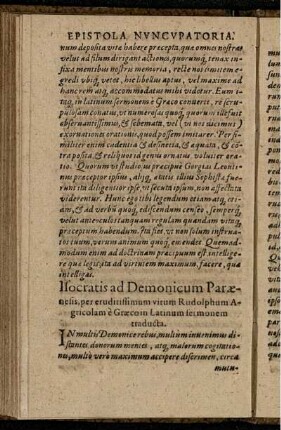 EPISTOLA NVNCVPATORIA.
num deposita vitæ habere præcepta, quæ omnes nostras
velut ad filum dirigant actiones, quorumq; tenax in
fixa mentibus nostris memoria, recte nos omitem e-
gredi vbiq; vetet, hic libellus aptus, vel maxime ad
hanc rem atq; accommodatus mihi videtur. Eum i-
taq; in latinum sermonem è Græco converti, ré scru-
pulosam conatus, vt numerosque quoq; quorum ille fuit
observantissimus, & schemata, vel (vt nos dicimus)
exornationes orationis, quod possem imitarer. Per si-
militer enim cadentia & desinentia, & agnata, & có
traposita, & reliquo id genus ornatu, voluitur ora-
tio. Quorum vt studiosi præcipuè Gorgias Leonti-
nus præceptor ipsius, atq; ætatis illius Sophistæ fue-
runt ita diligentior ipse, vt secuta ipsum, non affectata
viderentur. Hunc ego tibi legendum etiam atq; eti-
am, & ad verbum quoq; ediscendum censeo, semperq;
velut ante oculos tanquam regulam quandam vitæq;
præceptum habendum. Ita fiet, vt non solum instru-
ctiorum, verum animum quoq; emendet. Quemad-
modum enim ad doctrinam præcipuum est intellige-
re quæ legis, ita ad virtutem maximum, facere, quæ
intelligas.
Isocratis ad Demonicum Paræ-
nesis, per eruditissimum virum Rudolphum A-
gricolam è Græco in Latinum sermonem
traducta.
IN multis Demonice rebus, multum invenimus di-
stantes bonorum mentes, atq; malorum cogitatio-
nes, multò verò maximum accipere discrimen, circa
mutu-